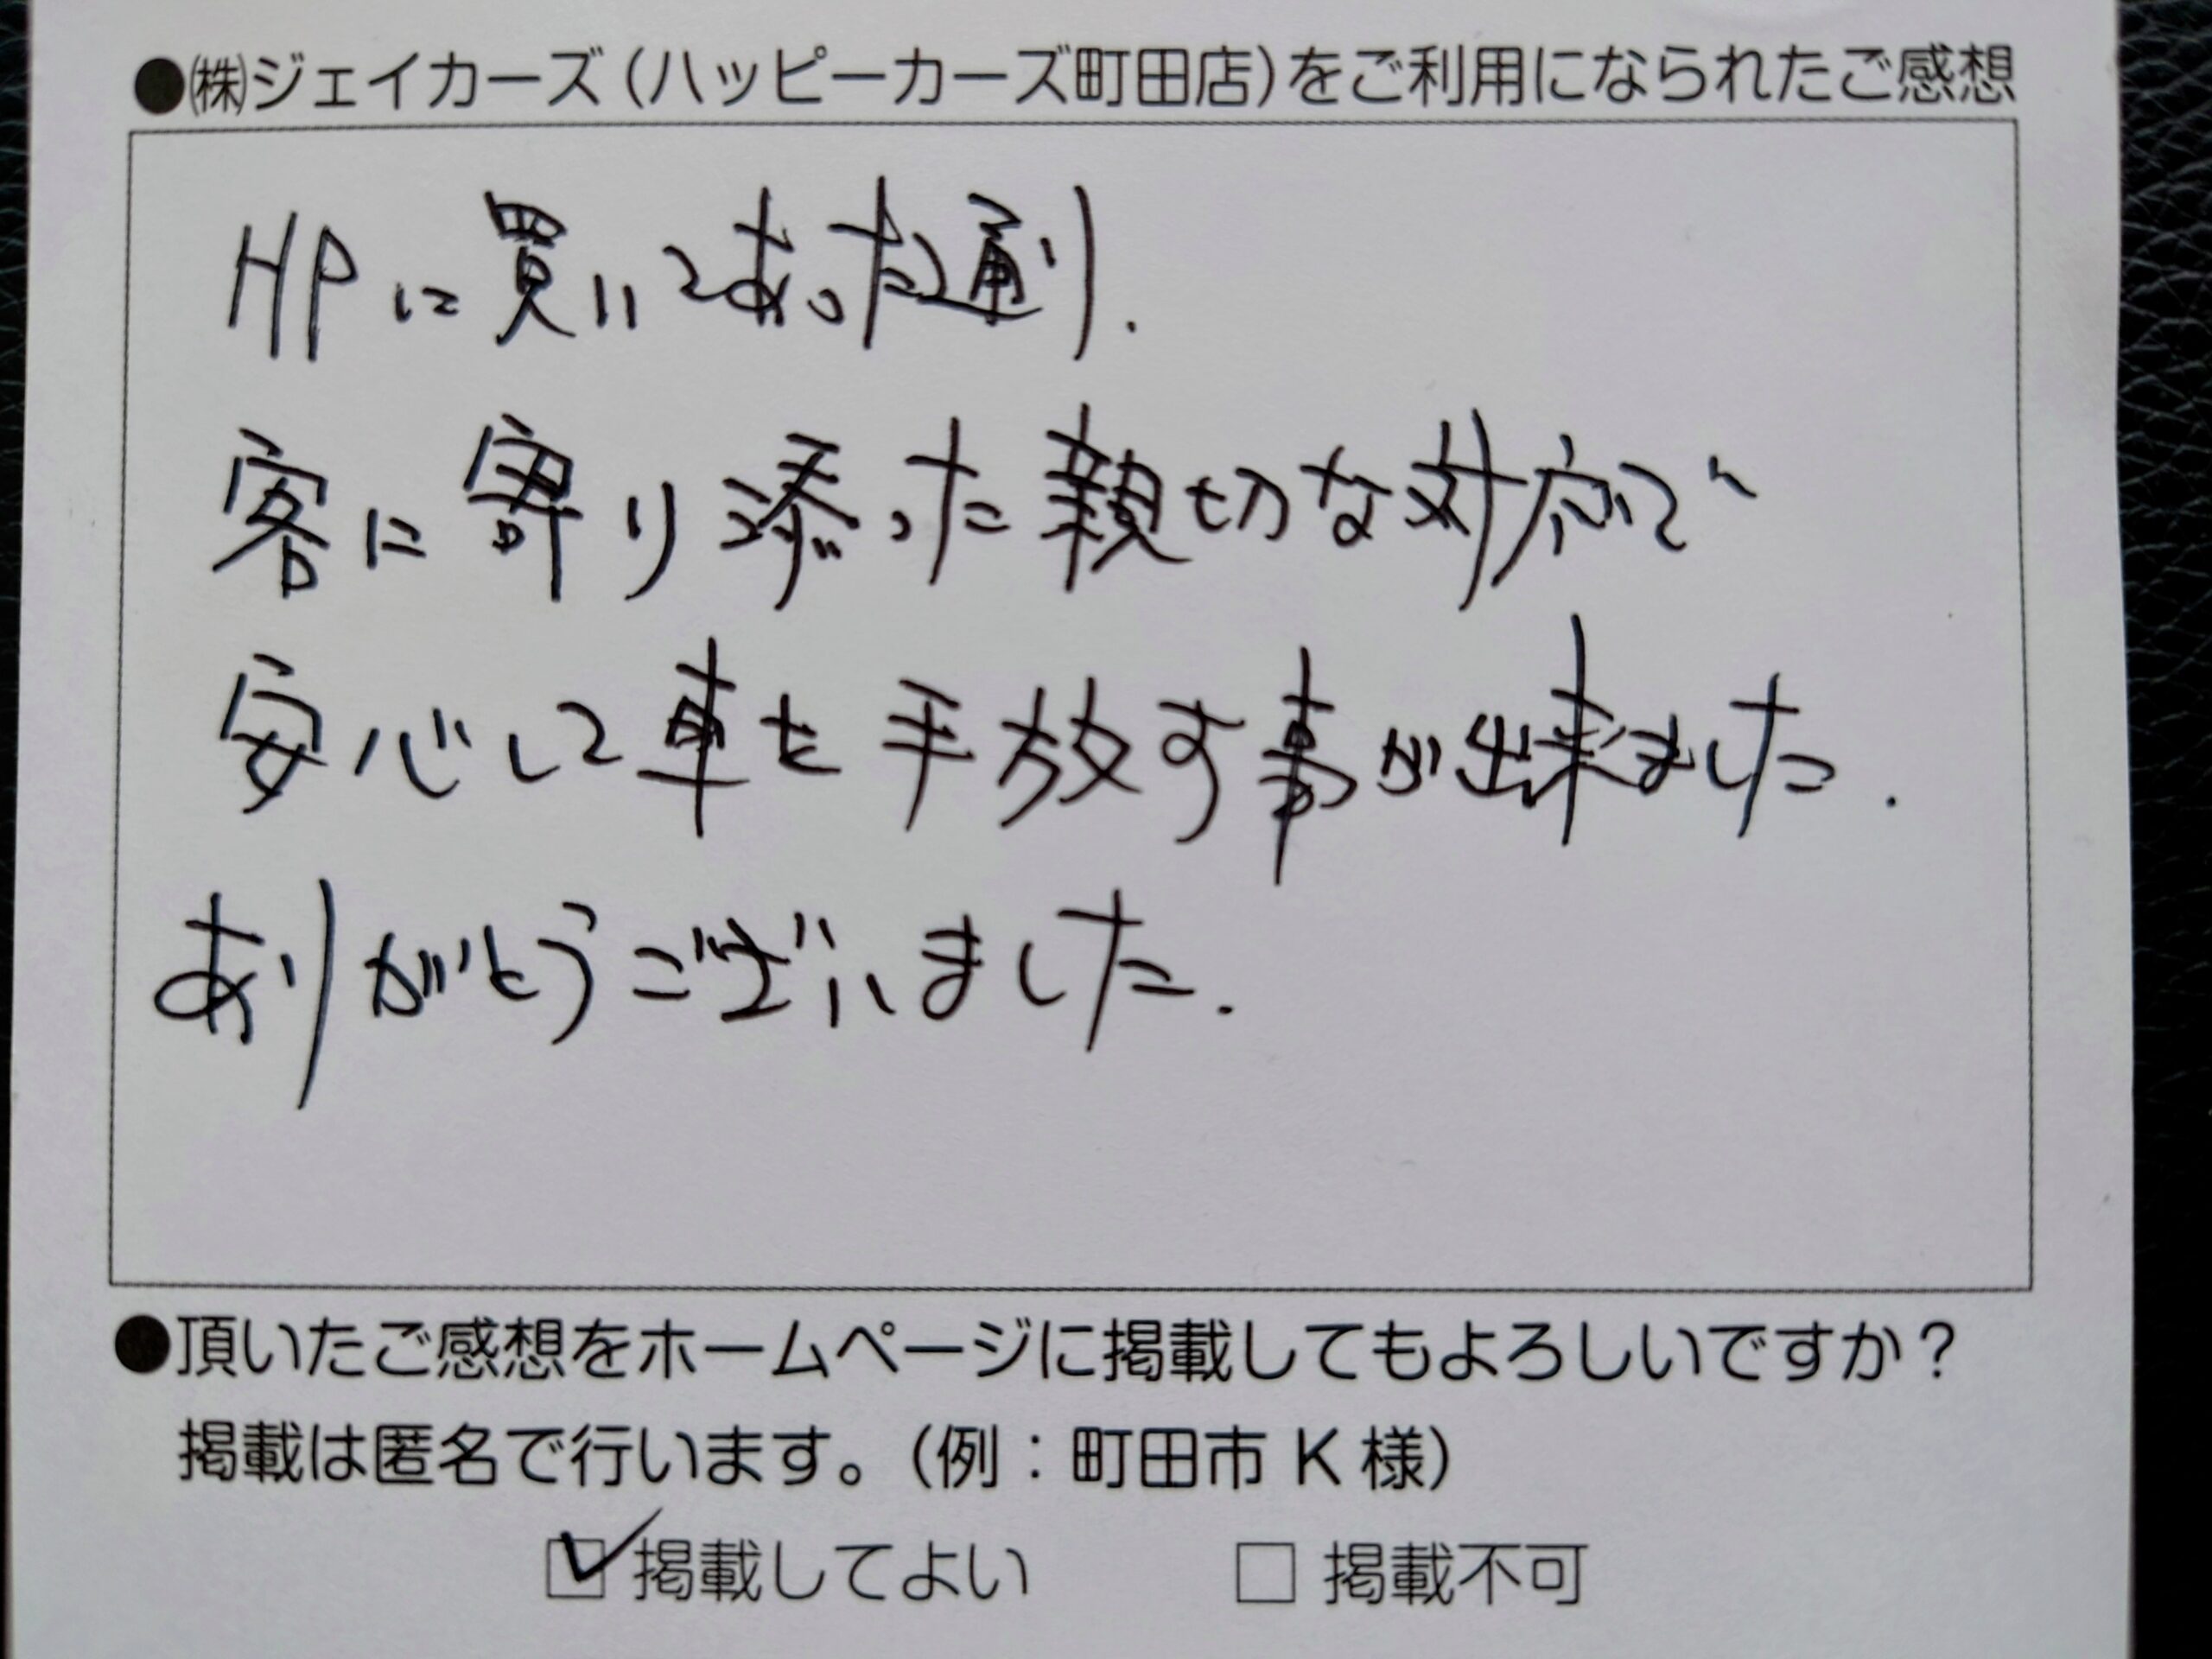 ●㈱ジェイカーズ(ハッピーカーズ町田店)をご利用になられたご感想
HPに買いてあった通り.
客に寄り添った親切な対応で
安心して車を手放す事が出来ました.
ありがとうございました.
●頂いたご感想をホームページに掲載してもよろしいですか?
掲載は匿名で行います。(例:町田市 K 様)
☑掲載してよい □ 掲載不可